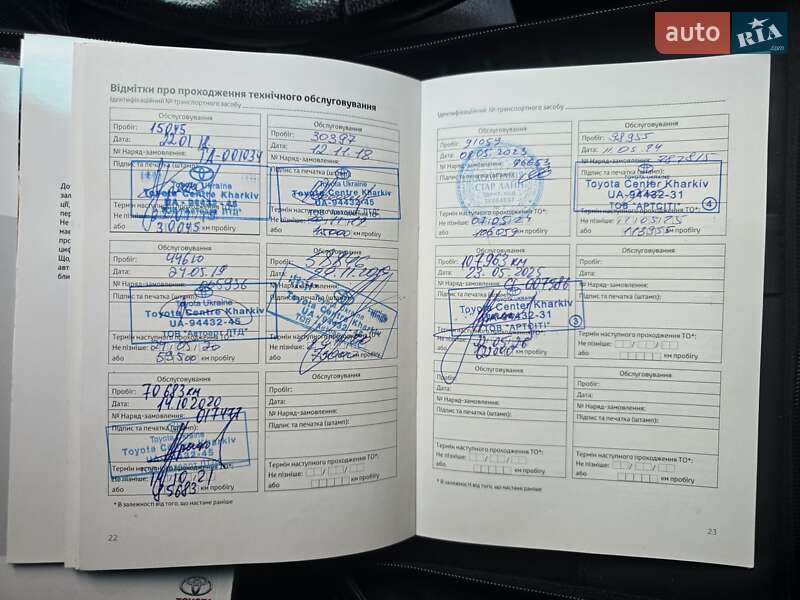 auto RIA .com
Відмітки про проходження технічного обслуговування
Ідентифікаційний № транспортного засобу
Обслуговування
Пробіг: 15045
Дата: 22.01.18
№ Наряд-замовлення: ТА-001034
Підпис та печатка (штамп):
Toyota Ukraine
Toyota Centre Kharkiv
UA-94432-45
Термін наступного
Не пізніше:
або 30045 км пробігу
Обслуговування
Пробіг: 30397
Дата: 12.11.18
№ Наряд-замовлення:
Підпис та печатка (штамп):
Toyota Ukraine
Toyota Centre Kharkiv
UA-94432-45
Термін
Не пізніше:
або 45000 км пробігу
Обслуговування
Пробіг: 44610
Дата: 24.05.19
№ Наряд-замовлення:
Підпис та печатка (штамп):
Toyota Ukraine
Toyota Centre Kharkiv
UA-94432-45
Термін наступного проходження ТО*:
Не пізніше: 24/05/20
або 53500 км пробігу
Обслуговування
Пробіг:
Дата:
№ Наряд-замовлення:
Підпис та печатка
Термін наступного проходження ТО*:
Не пізніше:
або км пробігу
Обслуговування
Пробіг: 70683км
Дата: 14.10.2020
№ Наряд-замовлення: 017477
Підпис та печатка (штамп):
Toyota Ukraine
Toyota Centre Kharkiv
UA-94432-45
Термін наступного
Не пізніше: 14/10/21
або 85683 км пробігу
Обслуговування
Пробіг:
Дата:
№ Наряд-замовлення:
Підпис та печатка (штамп):
Термін наступного проходження ТО*:
Не пізніше:
або км пробігу
* В залежності від того, що настане раніше
22
Ідентифікаційний № транспортного засобу
Обслуговування
Пробіг: 91057
Дата: 04.05.2023
№ Наряд-замовлення: 96653
Підпис та печатка
СТАР ЛАЙН
Термін наступного проходження ТО*:
Не пізніше:
або 106057 км пробігу
Обслуговування
Пробіг: 98955
Дата: 11.05.24
№ Наряд-замовлення: 757815
Підпис та печатка (штамп):
Toyota Center Kharkiv
UA-94432-31
ТОВ "АРТСІТІ"
4
Термін наступного проходження ТО*:
Не пізніше: 11/05/25
або 113955 км пробігу
Обслуговування
Пробіг: 107963 км
Дата: 23.05.2025
№ Наряд-замовлення:
Підпис та печатка (штамп):
Toyota Center Kharkiv
UA-94432-31
ТОВ "АРТСІТІ"
3
Термін наступного проходження ТО*:
Не пізніше:
або км пробігу
Обслуговування
Пробіг:
Дата:
№ Наряд-замовлення:
Підпис та печатка (штамп):
Термін наступного проходження ТО*:
Не пізніше:
або км пробігу
Обслуговування
Пробіг:
Дата:
№ Наряд-замовлення:
Підпис та печатка (штамп):
Термін наступного проходження ТО*:
Не пізніше:
або км пробігу
Обслуговування
Пробіг:
Дата:
№ Наряд-замовлення:
Підпис та печатка (штамп):
Термін наступного проходження ТО*:
Не пізніше:
або км пробігу
* В залежності від того, що настане раніше
23
TOYOTA